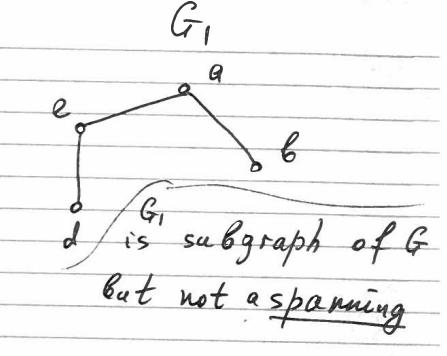 G1
a
e
b
d
G1
is subgraph of G
but not a spanning